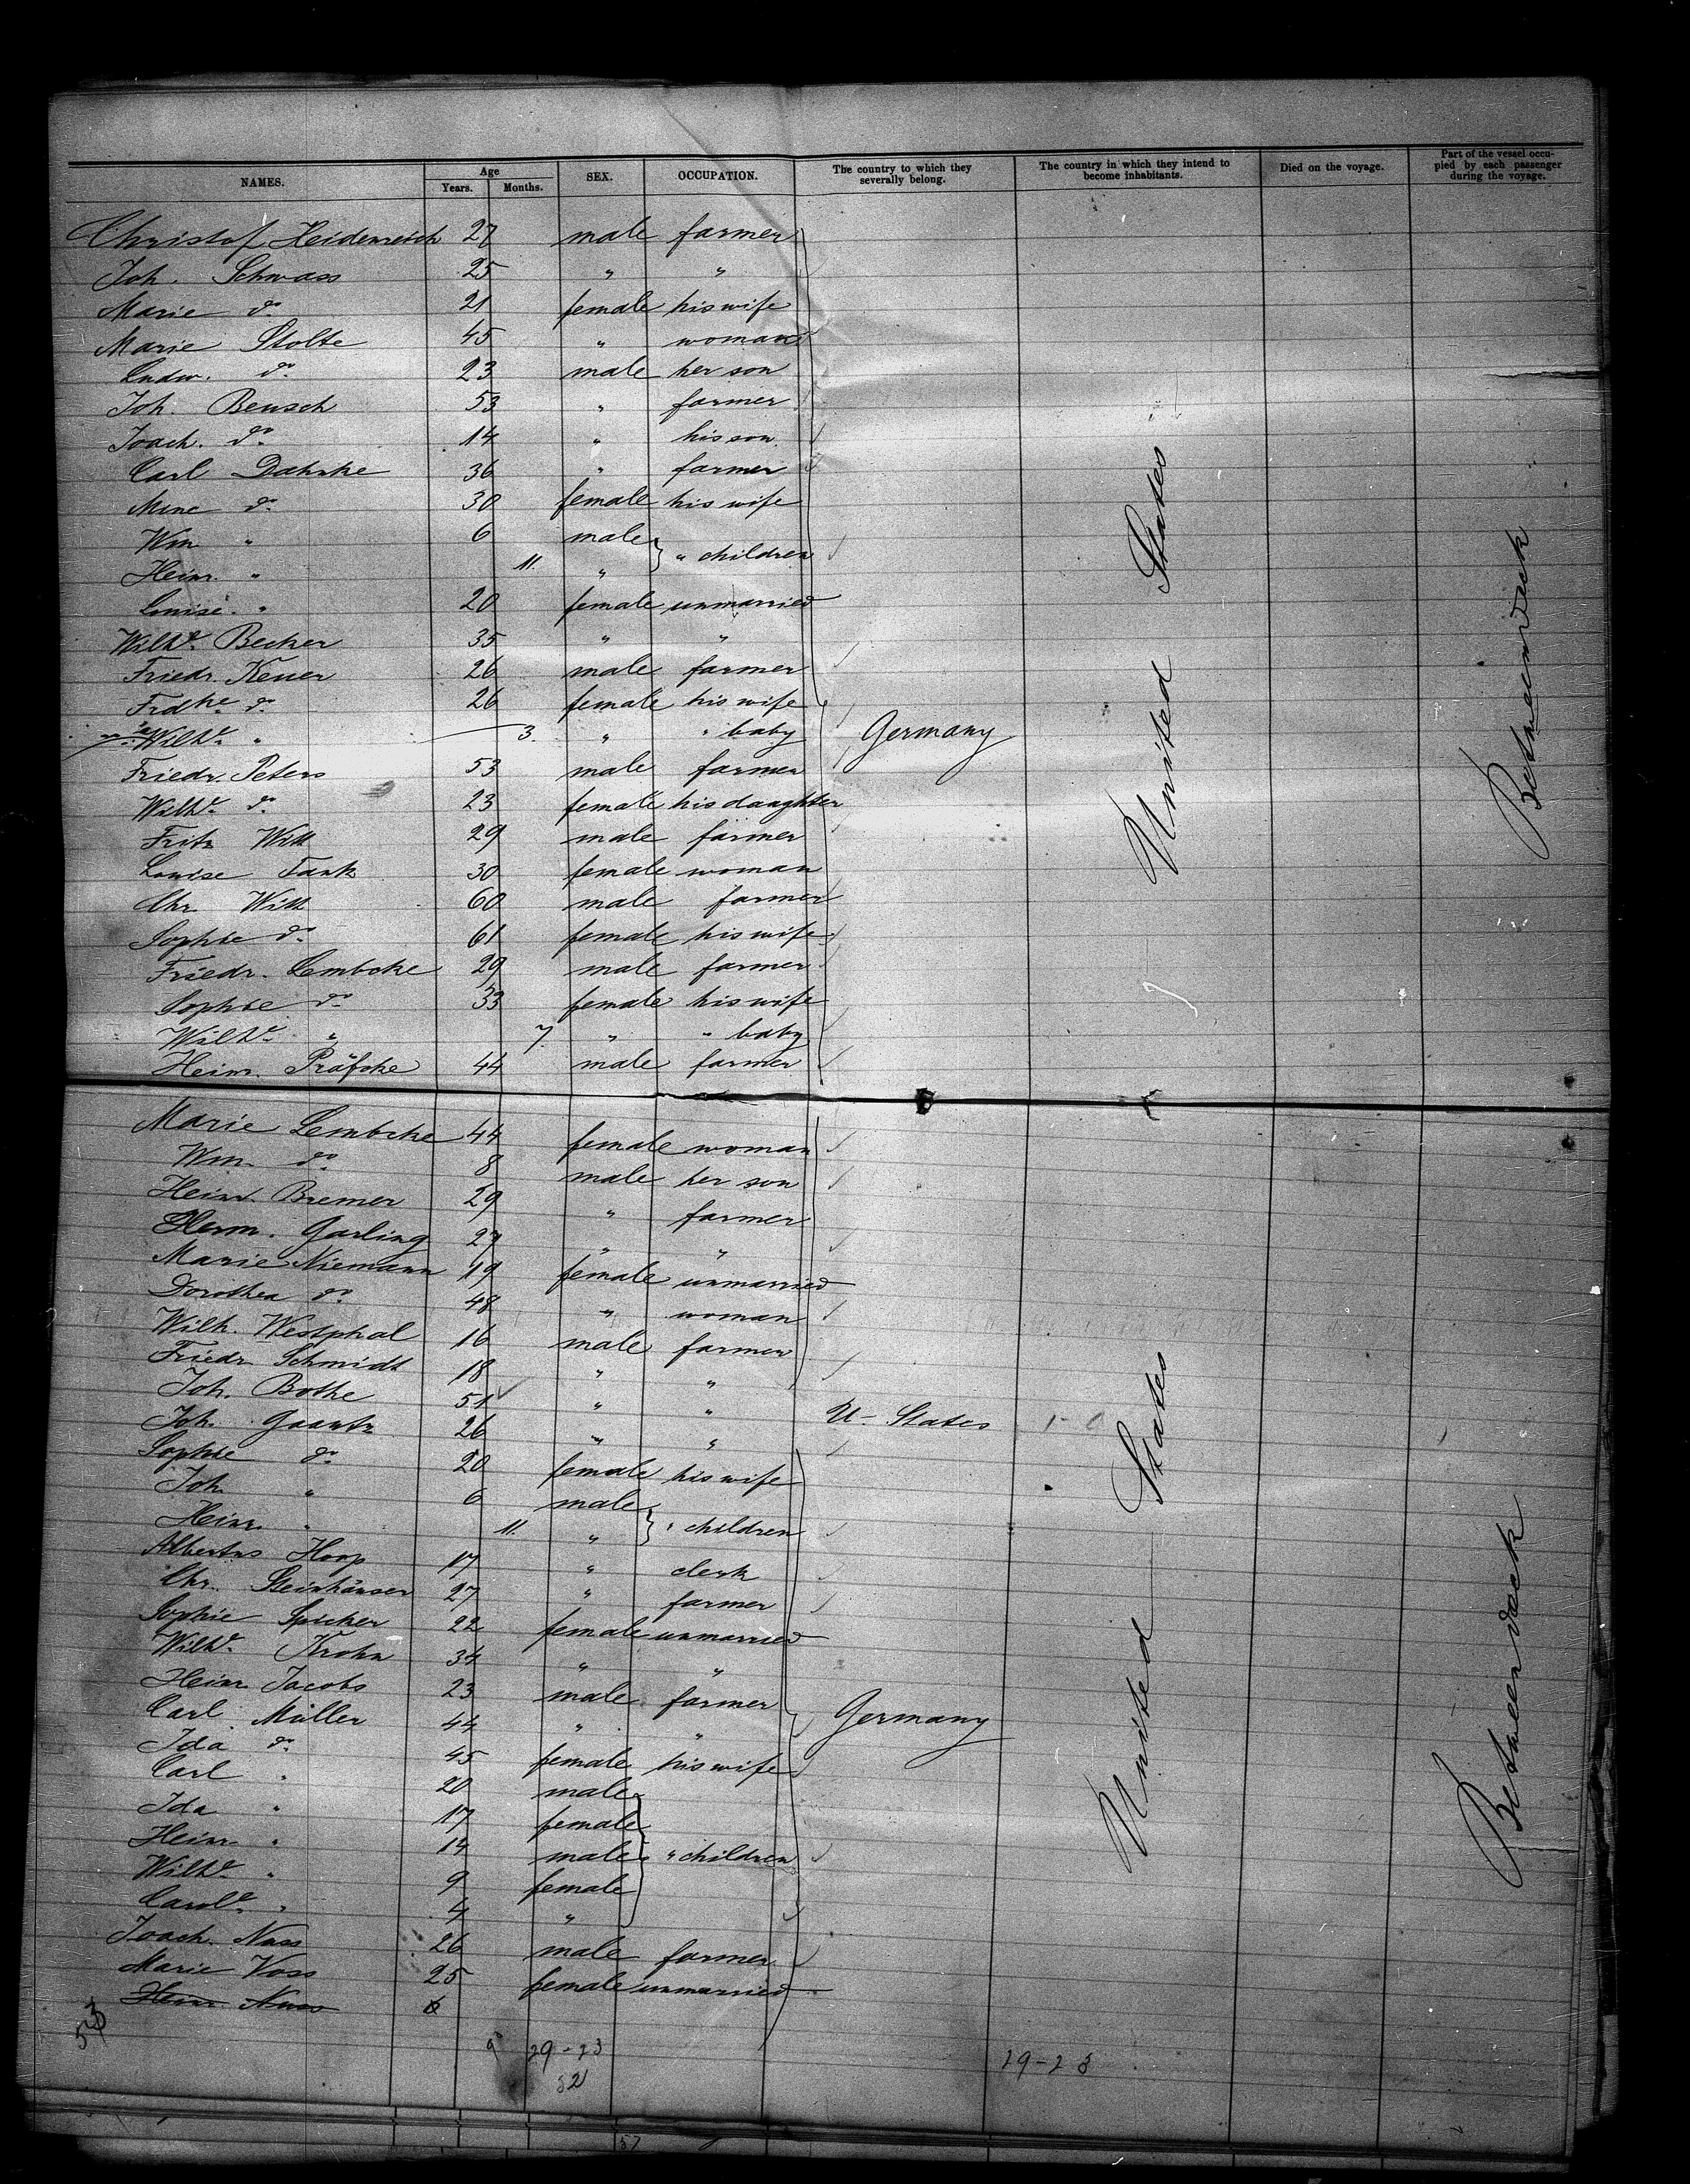 NAMES. Age Years. Months. SEX. OCCUPATION. The country to which they severally belong. The country in which they intend to become inhabitants. Died on the voyage. Part of the vessel occupied by each passenger during the voyage.
Christof Heidenreich 27 male farmer
Joh. Schwass 25 " "
Marie do 21 female his wife
Marie Stolte 45 " woman
Ludw. do 23 male her son
Joh. Beusch 53 " farmer
Joach. do 14 " his son
Carl Dahnke 36 " farmer
Mine do 30 female his wife
Wm " 6 male
Heinr. " 11. " } " children
Louise. " 20 female unmarried
Wilhe. Becker 35 " "
Friedr. Keuer 26 male farmer
Frdke do 26 female his wife
Wilhe. " 3. " " baby Germany
Friedr. Peters 53 male farmer
Wilhe. do 23 female his daughter
Fritz Will 29 male farmer United States
Louise Tank 30 female woman Between deck
Chr. Will 60 male farmer
Sophie do 61 female his wife
Friedr. Lembcke 29 male farmer
Sophie do 33 female his wife
Wilhe. " 7. " " baby
Heinr. Präfcke 44 male farmer
Marie Lembcke 44 female woman
Wm. do 8 male her son
Heinr. Bremer 29 " farmer
Herm. Garling 27 " "
Marie Niemann 19 female unmarried
Dorothea do 48 " woman
Wilh. Westphal 16 male farmer
Friedr. Schmidt 18 " "
Joh. Bothe 51 " " U-States 1-0
Joh. Gaartz 26 " "
Sophie do 20 female his wife
Joh. " 6 male
Heinr. " 11. " } " children
Albertus Hoop 17 " clerk
Chr. Steinhäuser 27 " farmer
Sophie Spicker 22 female unmarried
Wilhe. Krohn 34 " "
Heinr. Jacobs 23 male farmer
Carl Müller 44 " " Germany
Ida do 45 female his wife
Carl " 20 male
Ida " 17 female United States
Heinr. " 14 male " children Between deck
Wilhe " 9 female
Carole. " 4 "
Joach. Nass 26 male farmer
Marie Voss 25 female unmarried
Heinr. Nass 6
53
29-23 29-23
52